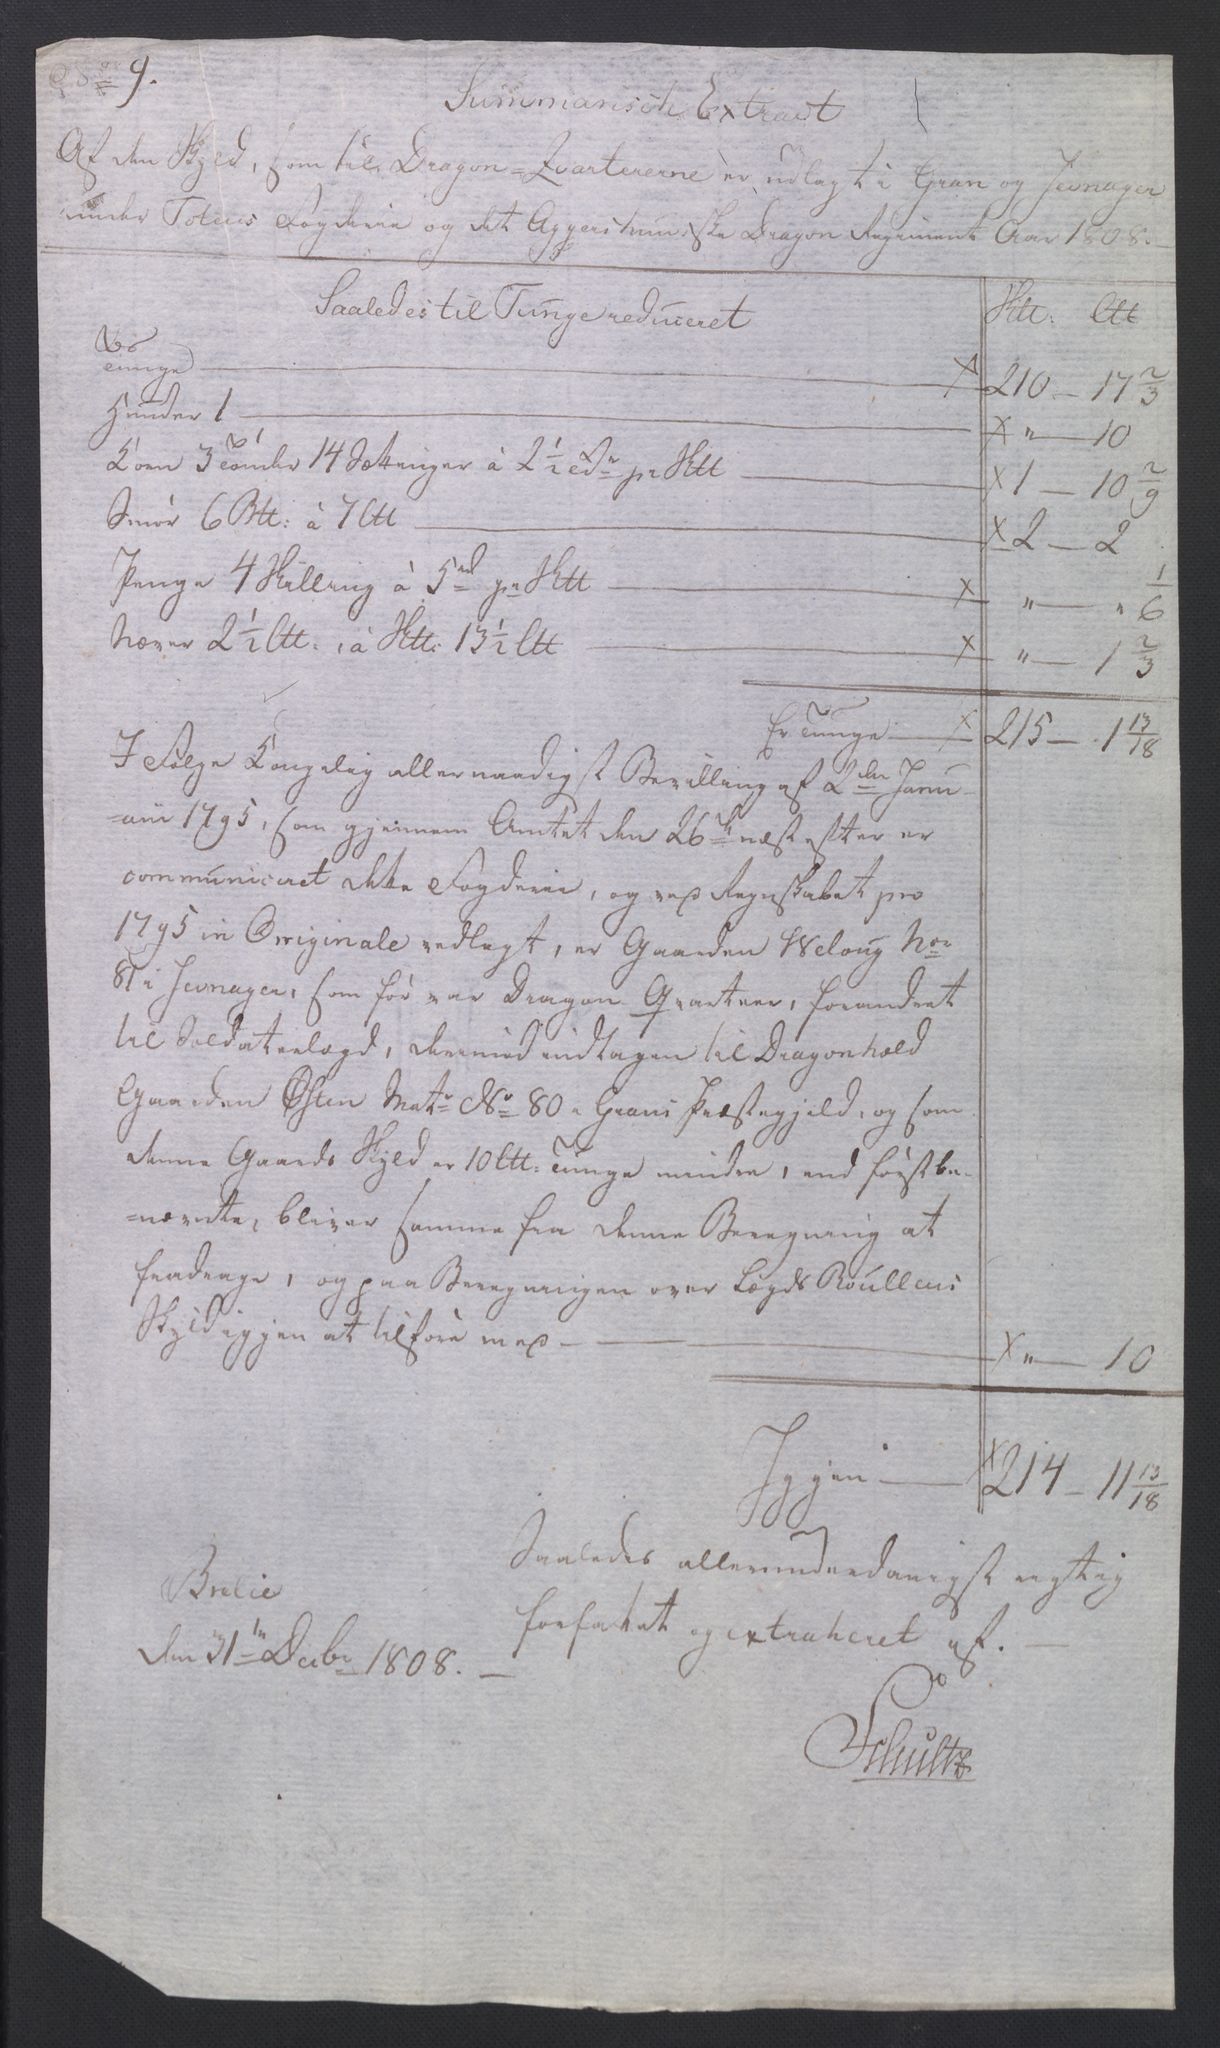 9.
Summarisch Extract
Af den Skyld, som til Dragon-Qvartererne er udlagt i Gran og Jevnager
under Totens Fogderie og det Aggershuusiske Dragon Regiment Aar 1808.
Saaledes til Tunge reduceret Htt: Ltt
Tunge 210 — 17 2/3
Huuder 1 " — 10
Korn 3 Tønder 14 Sættinger à 2 1/2 Tdr pr Htt 1 — 10 2/9
Smør 6 Btt: à 7 Ltt 2 — 2
Penge 4 Skilling à 5 pr Htt " — " 1/6
Næver 2 1/2 Ltt: , à Htt: 13 1/2 Ltt " — 1 2/3
Er Tunge 215 — 1 13/18
I Følge Kongelig allernaadigst Bevilling af 2den Janu-
-arii 1795, som gjennem Amtet den 26de næst efter er
communiceret dette Fogderie, og ved Regnskabet pro
1795 in Originale vedlagt, er Gaarden Weloug No
81 i Jevnager, som før var Dragon Qvarteer, forandret
til Soldaterlægd, derimod indtagen til Dragonhold
Gaarden Østen Mat: No 80 i Grans Præstegjeld, og som
denne Gaards Skyld er 10 Ltt: Tunge mindre, end først be-
-nævnte, bliver samme fra denne Beregning at
fradrage, og paa Beregningen over Lægds Roullens
Skyld igjen at tilføre med — " — 10
Igjen 214 — 11 13/18
Saaledes allerunderdanigst rigtig
forfattet og extraheret af. —
Brelie
den 31te Decbr 1808. —
Schultz